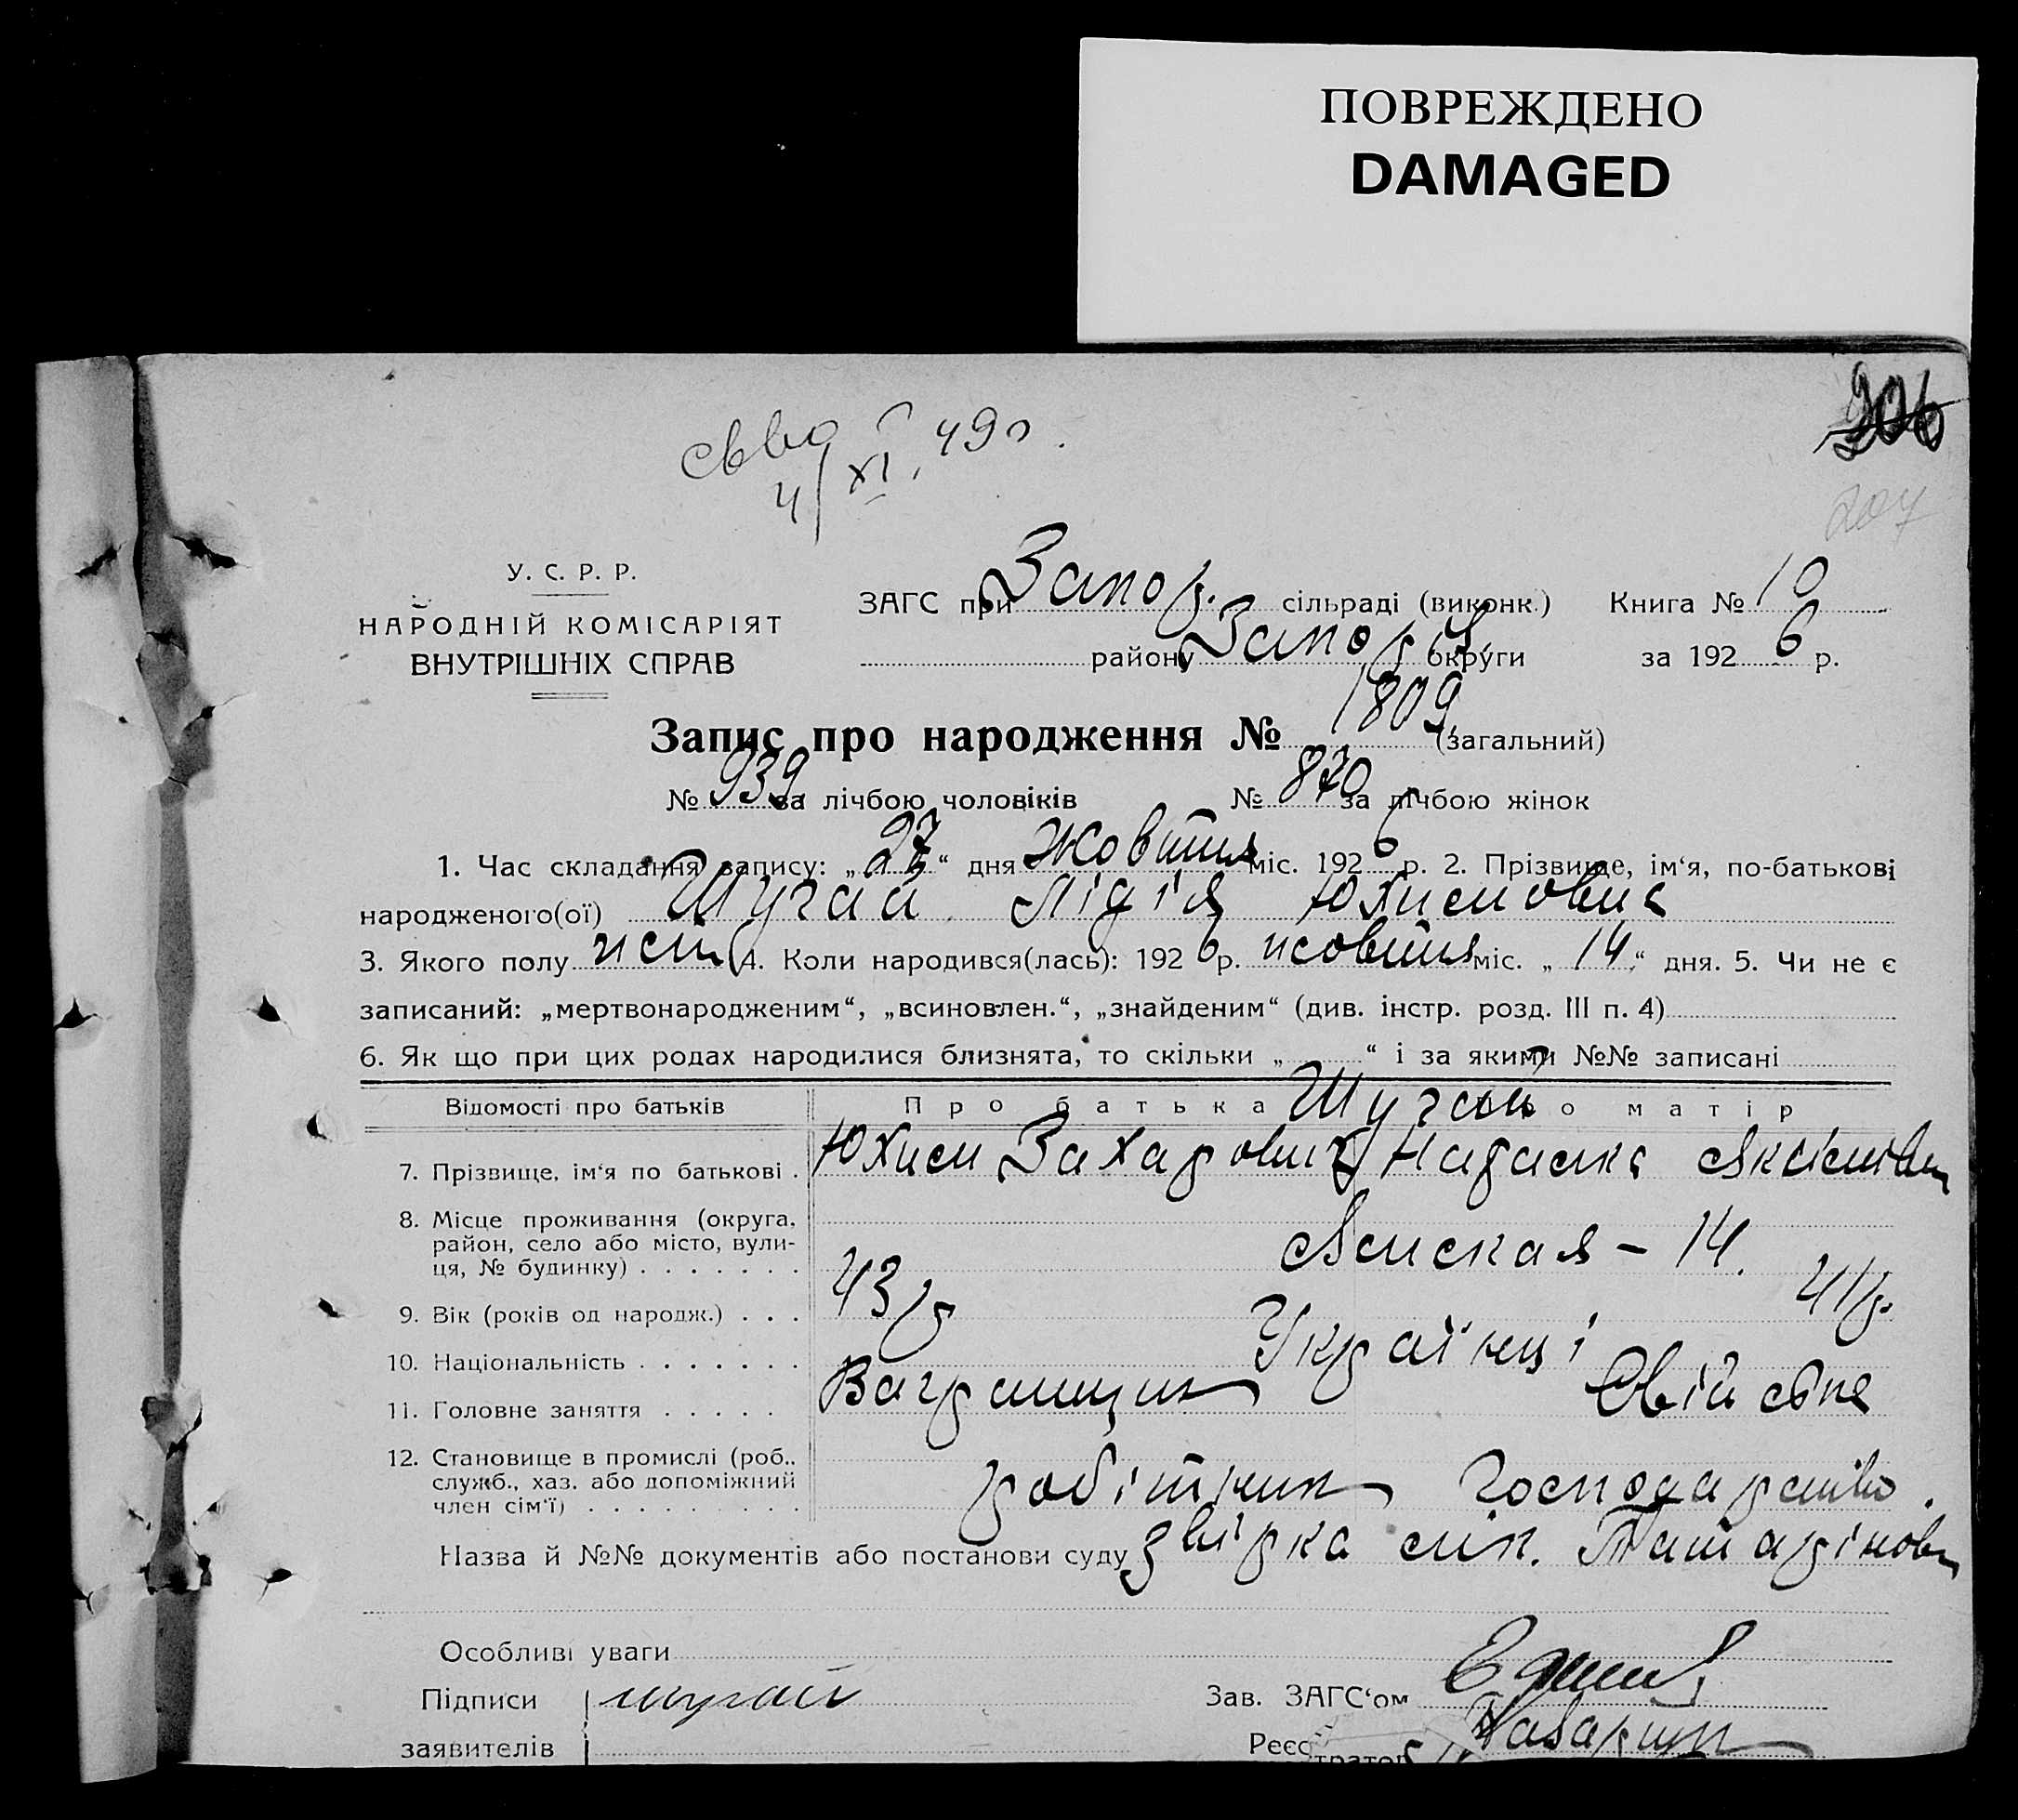 ПОВРЕЖДЕНО
DAMAGED
206
207
4/XI. 49 г.
У. С. Р. Р.
НАРОДНІЙ КОМІСАРІЯТ
ВНУТРІШНІХ СПРАВ
ЗАГС при Запор. сільраді (виконк.) Книга № 10
району Запоріз. округи за 1926 р.
Запис про народження № 1809 (загальний)
№ 939 за лічбою чоловіків № 870 за лічбою жінок
1. Час складання запису: „27“ дня Жовтня міс. 1926 р. 2. Прізвище, ім‘я, по-батькові
народженого(ої) Шугай Лідія Юхимовна
3. Якого полу жін. 4. Коли народився(лась): 1926 р. жовтня міс. „14“ дня. 5. Чи не є
записаний: „мертвонародженим“, „всиновлен.“, „знайденим“ (див. інстр. розд. III п. 4)
6. Як що при цих родах народилися близнята, то скільки „ “ і за якими №№ записані
Відомості про батьків Про батька Шугай Про матір
7. Прізвище, ім‘я по батькові . Юхим Захарович
8. Місце проживання (округа,
район, село або місто, вули-
ця, № будинку) . . . . . . . – 14.
9. Вік (років од народж.) . . . 43 р. 41 р.
10. Національність . . . . . . . Українці
11. Головне заняття . . . . .
12. Становище в промислі (роб.,
служб., хаз. або допоміжний
член сім‘ї) . . . . . . . . . робітник господарство.
Назва й №№ документів або постанови суду
Особливі уваги
Підписи шугай Зав. ЗАГС‘ом
заявителів Реєстратор